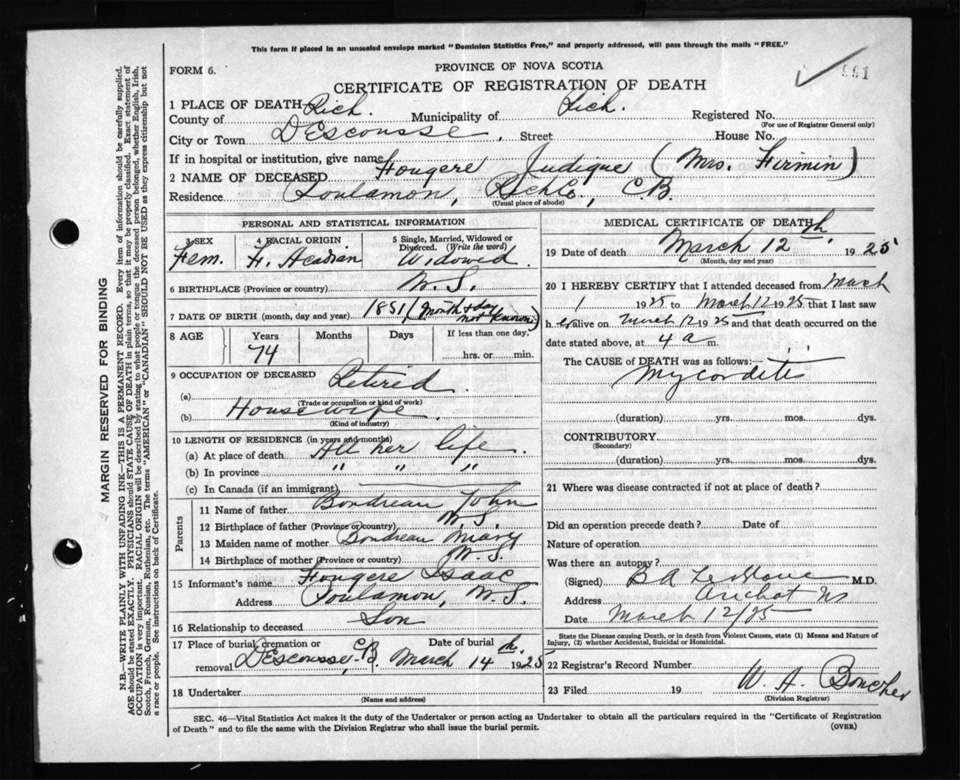 This form if placed in an unsealed envelope marked "Dominion Statistics Free," and properly addressed, will pass through the mails "FREE."
FORM 6.
PROVINCE OF NOVA SCOTIA
CERTIFICATE OF REGISTRATION OF DEATH
991
1 PLACE OF DEATH
County of Rich. Municipality of Rich. Registered No.
(For use of Registrar General only)
City or Town Descousse, Street House No.
If in hospital or institution, give name
2 NAME OF DECEASED Fougere Judique (Mrs. Firmin)
Residence Poulamon, Rich Co, C.B.
(Usual place of abode)
PERSONAL AND STATISTICAL INFORMATION
3 SEX
Fem.
4 RACIAL ORIGIN
Fr. Acadian
5 Single, Married, Widowed or Divorced. (Write the word)
Widowed.
6 BIRTHPLACE (Province or country) N.S.
7 DATE OF BIRTH (month, day and year) 1851 (month & day not known)
8 AGE Years Months Days If less than one day,
74 hrs. or min.
9 OCCUPATION OF DECEASED
(a) Retired
(Trade or occupation or kind of work)
(b) Housewife.
(Kind of industry)
10 LENGTH OF RESIDENCE (in years and months)
(a) At place of death All her life.
(b) In province " " "
(c) In Canada (if an immigrant)
Parents
11 Name of father Boudreau John
12 Birthplace of father (Province or country) N.S.
13 Maiden name of mother Boudreau Mary
14 Birthplace of mother (Province or country) N.S.
15 Informant's name Fougere Isaac
Address Poulamon, N.S.
16 Relationship to deceased Son
17 Place of burial, cremation or removal Descousse, C.B. Date of burial March 14th 1925
18 Undertaker
(Name and address)
MEDICAL CERTIFICATE OF DEATH
19 Date of death March 12th, 1925
(Month, day and year)
20 I HEREBY CERTIFY that I attended deceased from March
1 1925 to March 12 1925 that I last saw
h er alive on March 12 1925 and that death occurred on the
date stated above, at 4 a m.
The CAUSE of DEATH was as follows:
Myocarditis
(duration) yrs. mos. dys.
CONTRIBUTORY
(Secondary)
(duration) yrs. mos. dys.
21 Where was disease contracted if not at place of death?
Did an operation precede death? Date of
Nature of operation
Was there an autopsy?
(Signed) B A LeBlanc M.D.
Address Arichat NS
March 12/25
State the Disease causing Death, or in death from Violent Causes, state (1) Means and Nature of Injury, (2) whether Accidental, Suicidal or Homicidal.
22 Registrar's Record Number
23 Filed 19 W. A. Boucher
(Division Registrar)
SEC. 46—Vital Statistics Act makes it the duty of the Undertaker or person acting as Undertaker to obtain all the particulars required in the "Certificate of Registration
of Death" and to file the same with the Division Registrar who shall issue the burial permit.
(OVER)
MARGIN RESERVED FOR BINDING
N.B.—WRITE PLAINLY WITH UNFADING INK—THIS IS A PERMANENT RECORD. Every item of information should be carefully supplied.
AGE should be stated EXACTLY. PHYSICIANS should STATE CAUSE OF DEATH in plain terms, so that it may be properly classified. Exact statement of
OCCUPATION is very important. RACIAL ORIGIN will be described by stating to what people or tongue the deceased person belonged, whether English, Irish,
Scotch, French, German, Russian, Ruthenian, etc. The terms "AMERICAN" or "CANADIAN" SHOULD NOT BE USED as they express citizenship but not
a race or people. See instructions on back of Certificate.